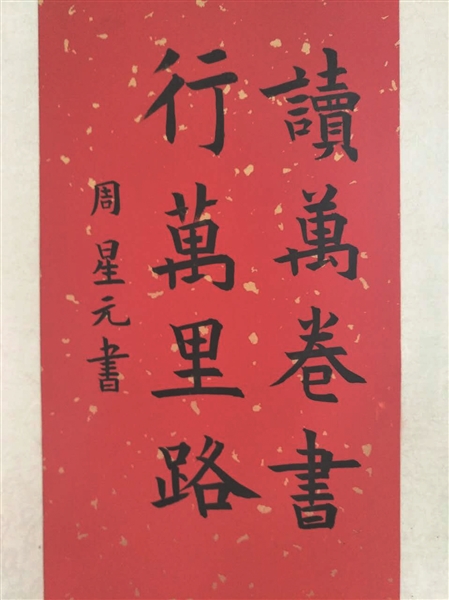 讀萬卷書
行萬里路
周星元書